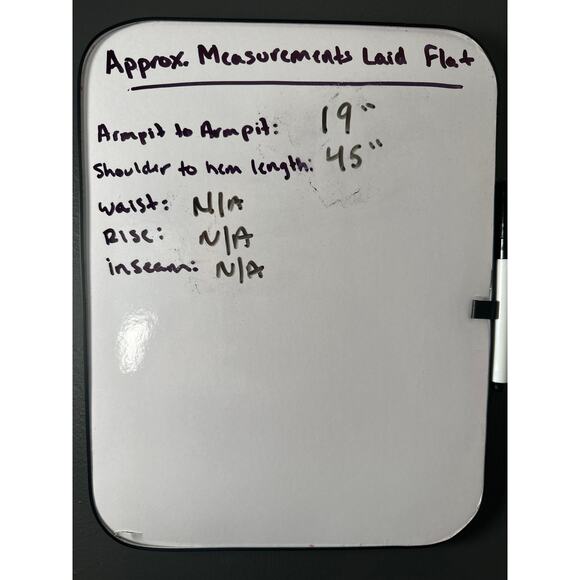 Approx. Measurements Laid Flat
Armpit to Armpit: 19"
Shoulder to hem length: 45"
waist: N/A
Rise: N/A
inseam: N/A